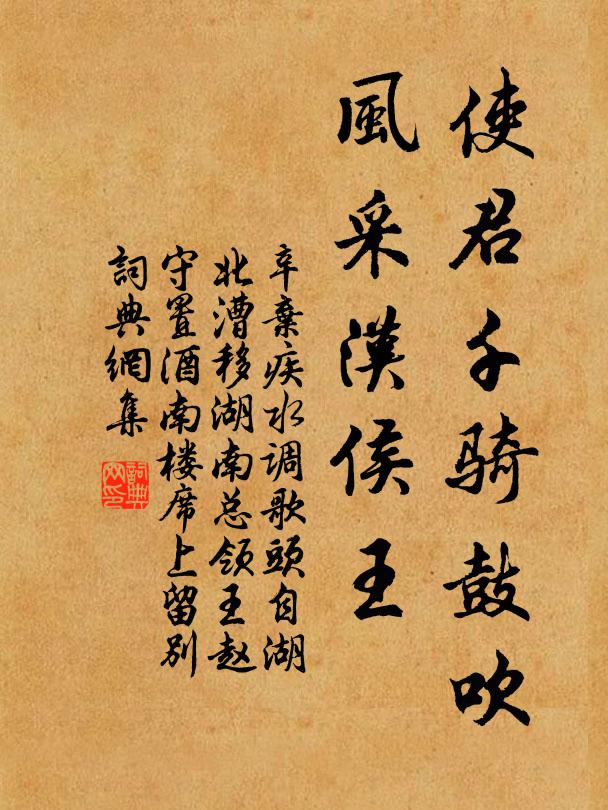 使君千骑鼓吹
風采漢侯王
辛棄疾水调歌頭自湖
北漕移湖南总领王赵
守置酒南楼席上留别
詞典網集
詞典網印